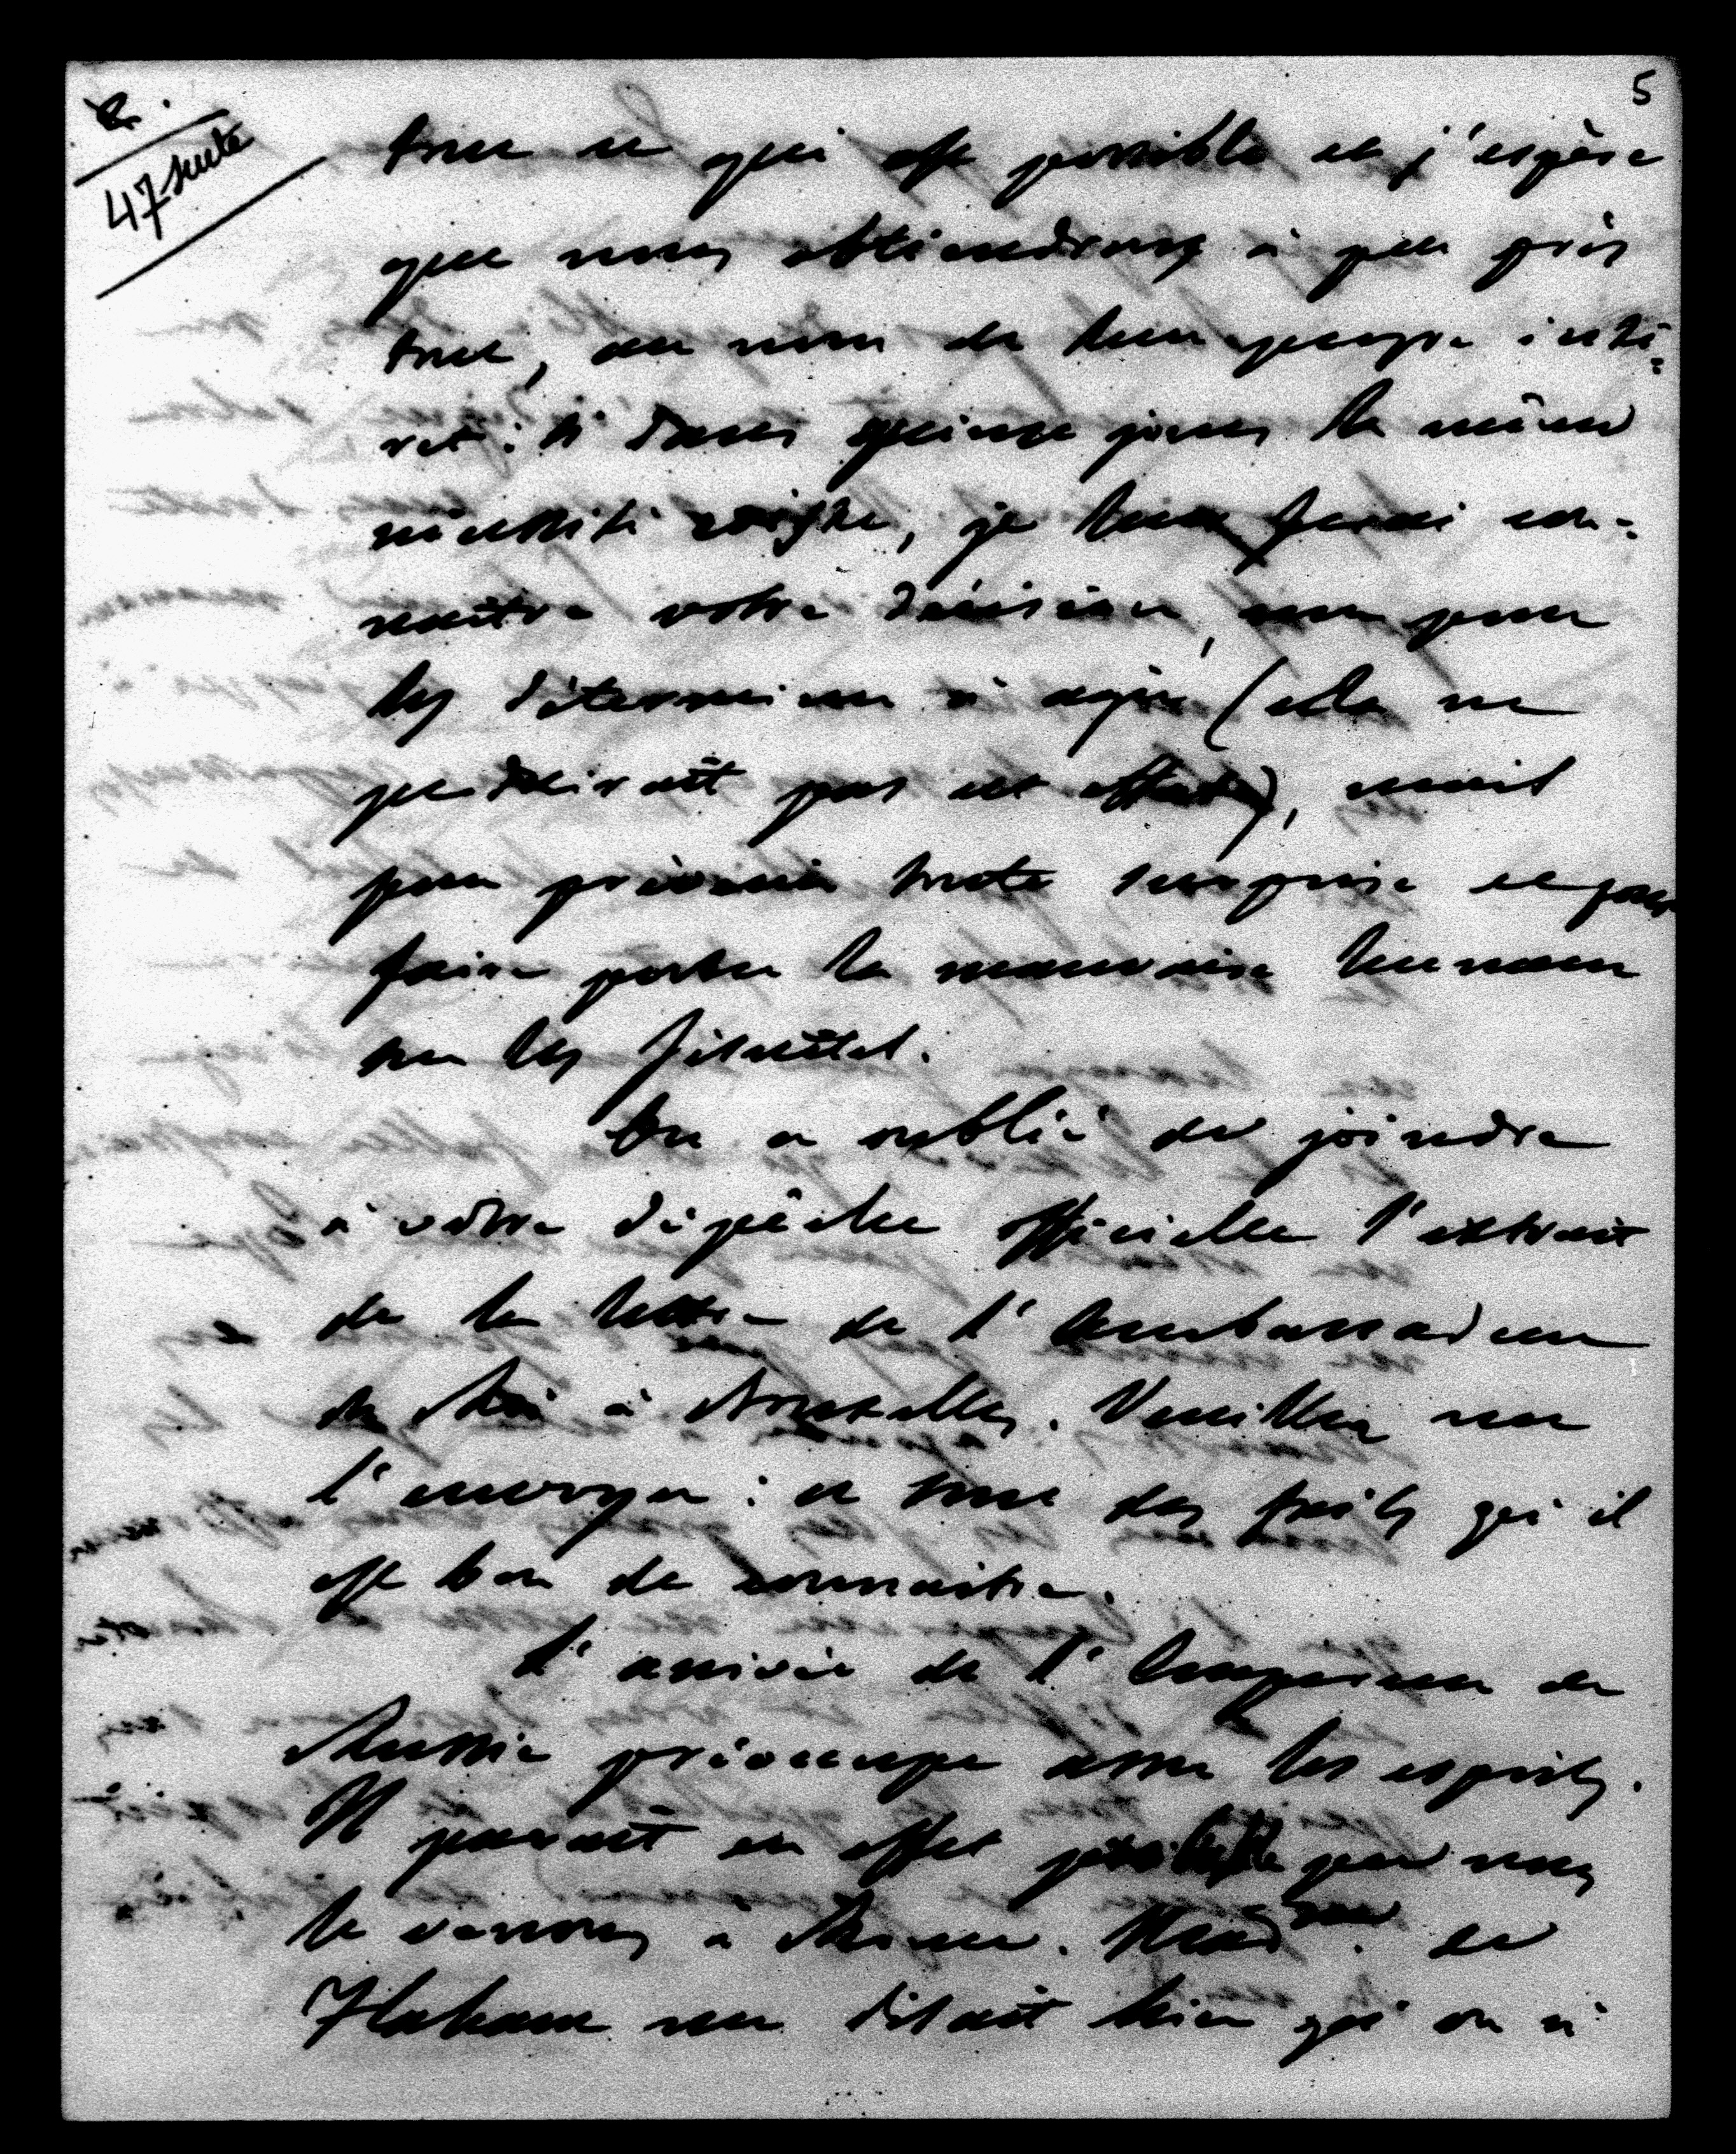 2.
47 suite
5
tout ce qui est possible et j'espère
que nous obtiendrons à peu près
tout, au nom de leur propre inté=
rêt : si dans quinze jours la même
nécessité existe, je leur ferai con=
naître votre décision, non pour
les déterminer à agir (cela ne
produirait pas cet effet), mais
pour prévenir toute surprise et pour
faire porter la mauvaise humeur
sur les Jésuites.
On a oublié de joindre
à votre dépêche officielle l'extrait
de la lettre de l'Ambassadeur
du Roi à Bruxelles. Veuillez me
l'envoyer : ce sont des faits qu'il
est bon de connaître.
L'arrivée de l'Empereur de
Russie préoccupe assez les esprits.
Il paraît en effet possible que nous
le verrons à Rome. Mad.me de
me disait hier qu'on a